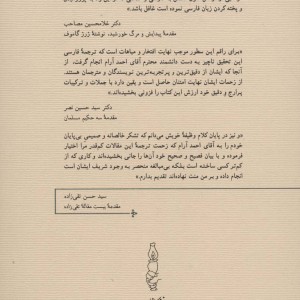 و پخته کردن زبان فارسی نموده است غافل باشد.»
دکتر غلامحسین مصاحب
مقدمهٔ پیدایش و مرگ خورشید، نوشتهٔ ژرژ گاموف
«برای راقم این سطور موجب نهایت افتخار و مباهات است که ترجمهٔ فارسی
این تحقیق ناچیز به دست دانشمند محترم آقای احمد آرام انجام گرفت، از
آنجا که ایشان از دقیق‌ترین و پرتجربه‌ترین نویسندگان و مترجمان هستند.
از زحمات ایشان نهایت امتنان حاصل است و یقین دارد با جملات و ترکیبات
پرارج و دقیق خود ارزش این کتاب را فزونی بخشیده‌اند.»
دکتر سید حسین نصر
مقدمهٔ سه حکیم مسلمان
«و نیز در پایان کلام وظیفهٔ خویش می‌دانم که تشکر خالصانه و صمیمی بی‌پایان
خودم را به آقای احمد آرام که زحمت ترجمهٔ این مقالات کم‌قدر مرا اختیار
فرموده و با بیان فصیح و صحیح خود آن‌ها را جانی بخشیده‌اند و کاری که از
کمتر کسی ساخته است بلکه بی‌مبالغه منحصر به وجود شریف ایشان است
انجام داده و بر من منت نهاده‌اند تقدیم بدارم.»
سید حسن تقی‌زاده
مقدمهٔ بیست مقالهٔ تقی‌زاده